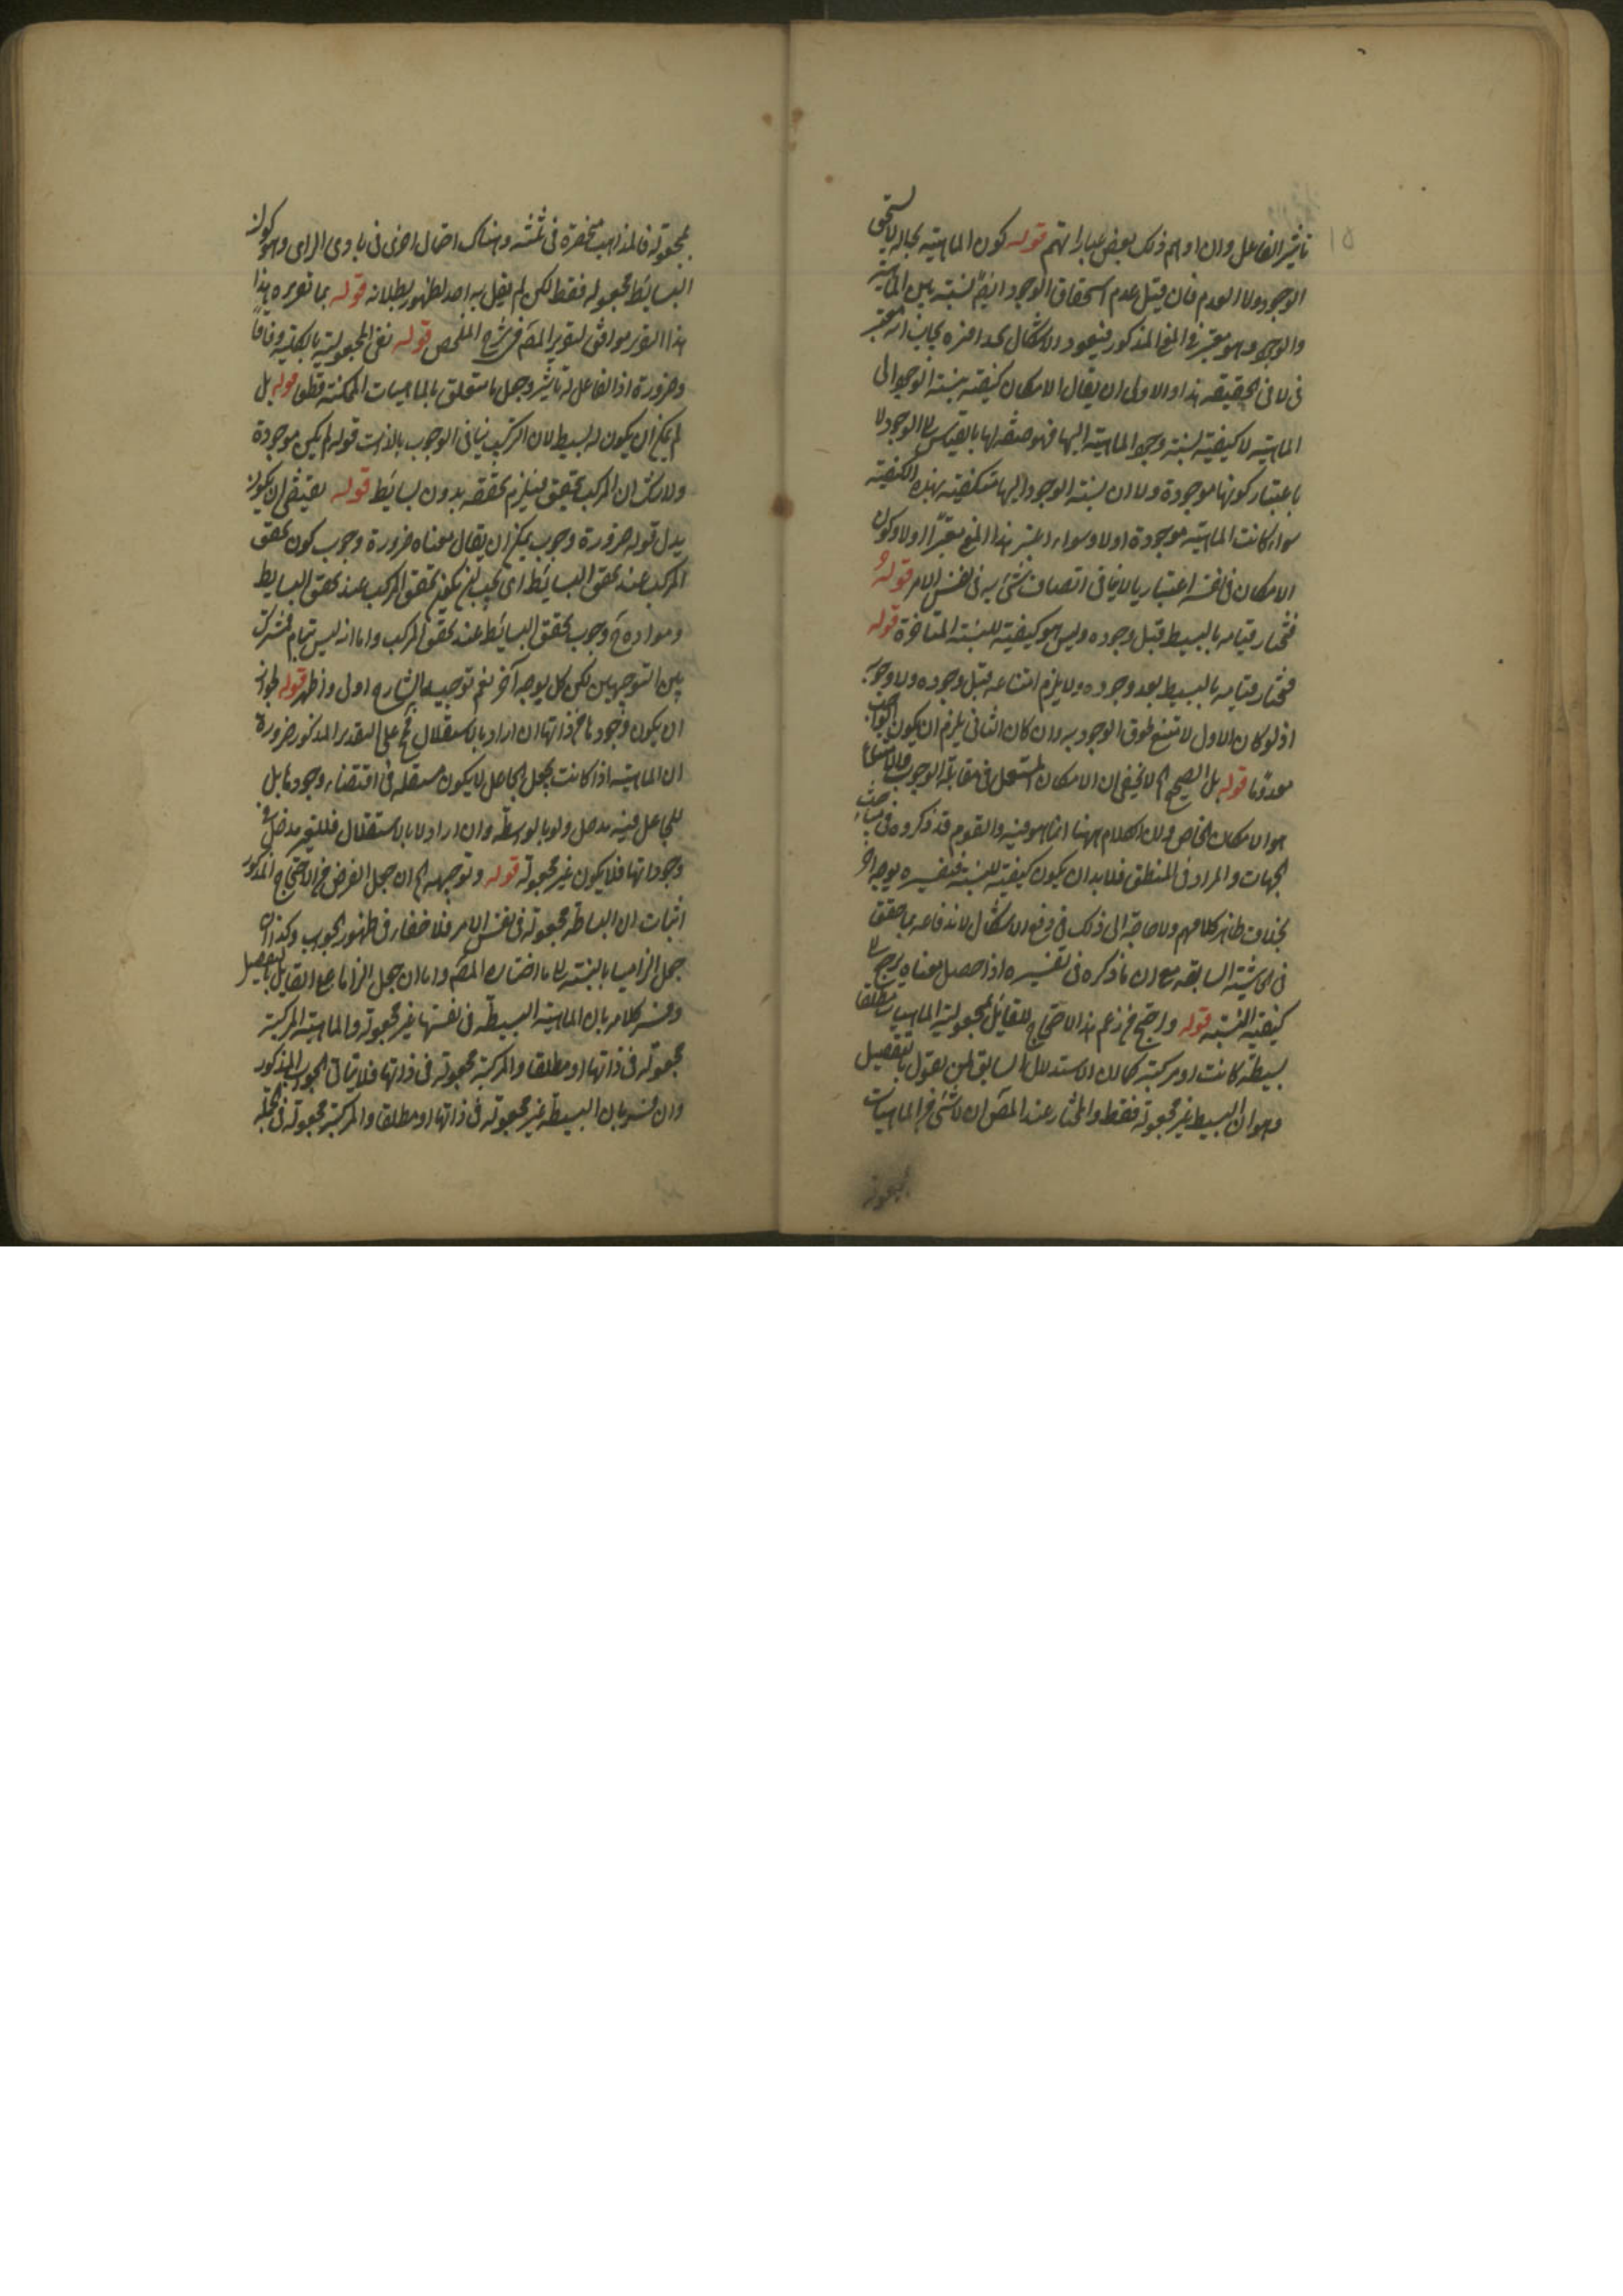 ١٥
تاثير الفاعل وان اوهم ذلك بعض عباراتهم قوله كون الماهية بحاله لا يستحق
الوجود ولا العدم فان قيل عدم استحقاق الوجود ايضا نسبة بين الماهية
والوجود وهو معتبر في المنع المذكور فيعود الاشكال يجاب انه معتبر
في لا في الحقيقه هذا والاولى ان يقال الامكان كيفية نسبة الوجود الى
الماهية لا كيفية نسبة وجود الماهية اليها فهو صفة لها بالقياس الى الوجود لا
باعتبار كونها موجودة ولا ان نسبة الوجود اليها متكيفية بهذه الكيفية
سواء كانت الماهية موجودة اولا وسواء اعتبر هذا المنع معتبرا اولا وكون
الامكان في نفسه اعتباريا لا ينافى اتصاف شئ به في نفس الامر قوله
فنختار قيامه بالبسيط قبل وجوده وليس هو كيفية للنسبة المتاخرة قوله
فنختار قيامه بالبسيط بعد وجوده ولا يلزم امتناعه قبل وجوده ولا وجوبه
اذ لو كان الاول لامتنع طوق الوجود به وان كان الثانى يلزم ان يكون الواجب
معدوما قوله بل الصحيح الخ لا يخفى ان الامكان المستعمل في مقابلة الوجوب والامتناع
هو الامكان الخاص ولان الكلام ههنا انما هو فيه والقوم قد ذكروه في مباحث
الجهات والمراد في المنطق فلا بد ان يكون كيفية للنسبة فتفسيره بوجه اخر
بخلاف ظاهر كلامهم ولا حاجة الى ذلك في دفع الاشكال لاندفاعه بما حقق
في الحاشية السابقه مع ان ما ذكره في تفسيره اذا حصل معناه يرجع الى
كيفية النسبة قوله واضح في زعم هذا الاحتجاج للقائل بمجعولية الماهيات مطلقا
بسيطة كانت او مركبة كما ان الاستدلال السابق لمن يقول بالتفصيل
وهو ان البسيط غير مجعولة فقط والمختار عند المص ان لا شئ من الماهيات
بمجعولة
بمجعولة فالمذاهب منحصرة في ثلثة وهناك احتمال اخرى في بادى الراى وهو كون
البسايط مجعوله فقط لكن لم يقل به احد لظهور بطلانه قوله بما تقريره هذا
هذا التقرير موافق لتقرير المص في شرح الملخص قوله نفى المجعولية بالكلية وفاقا
وضرورة اذ الفاعل له تاثير وجعل ما متعلق بالماهيات الممكنة قطعا قوله بل
لم يمكن ان يكون له بسيط لان التركيب ينافى الوجوب بالذات قوله لم يكن موجودة
ولا شك ان المركب تحقق فيلزم تحققه بدون بسايط قوله يقتضى ان يكون
بدل قوله ضرورة وجوب يمكن ان يقال معناه ضرورة وجوب كون تحقق
المركب عند تحقق البسايط اى يجب ان يكون تحقق المركب عند تحقق البسايط
ومواده وجوب تحقق البسايط عند تحقق المركب واما انه ليس تمام فمشترك
بين التوجيهين لكن كل بوجه آخر نعم توجيه الشارح اولى واظهر قوله لجواز
ان يكون وجودها من ذاتها ان اراد بالاستقلال فم على التقدير المذكور ضرورة
ان الماهية اذا كانت بجعل الجاعل لا يكون مستقلة في اقتضاء وجودها بل
للجاعل فيه مدخل ولو بالوسطة وان اراد لا بالاستقلال فللغير مدخل في
وجوداتها فلا يكون غير مجعولة قوله وتوجيهه الخ ان جعل الغرض من الاحتجاج المذكور
اثبات ان البساطة مجعولة في نفس الامر فلا خفاء في ظهور الجواب وكذا ان
جعل الزاميا بالنسبة الى ما اختاره المص واما ان جعل الزاما على القايل بالتفصيل
وفسر كلامه بان الماهية البسيطة في نفسها غير مجعولة والماهية المركبة
مجعولة في ذاتها او مطلقا والمركبة مجعولة في ذاتها فلا يتاتى الجواب المذكور
وان فسر بان البسيطة غير مجعولة في ذاتها او مطلقا والمركبة مجعولة في الجملة